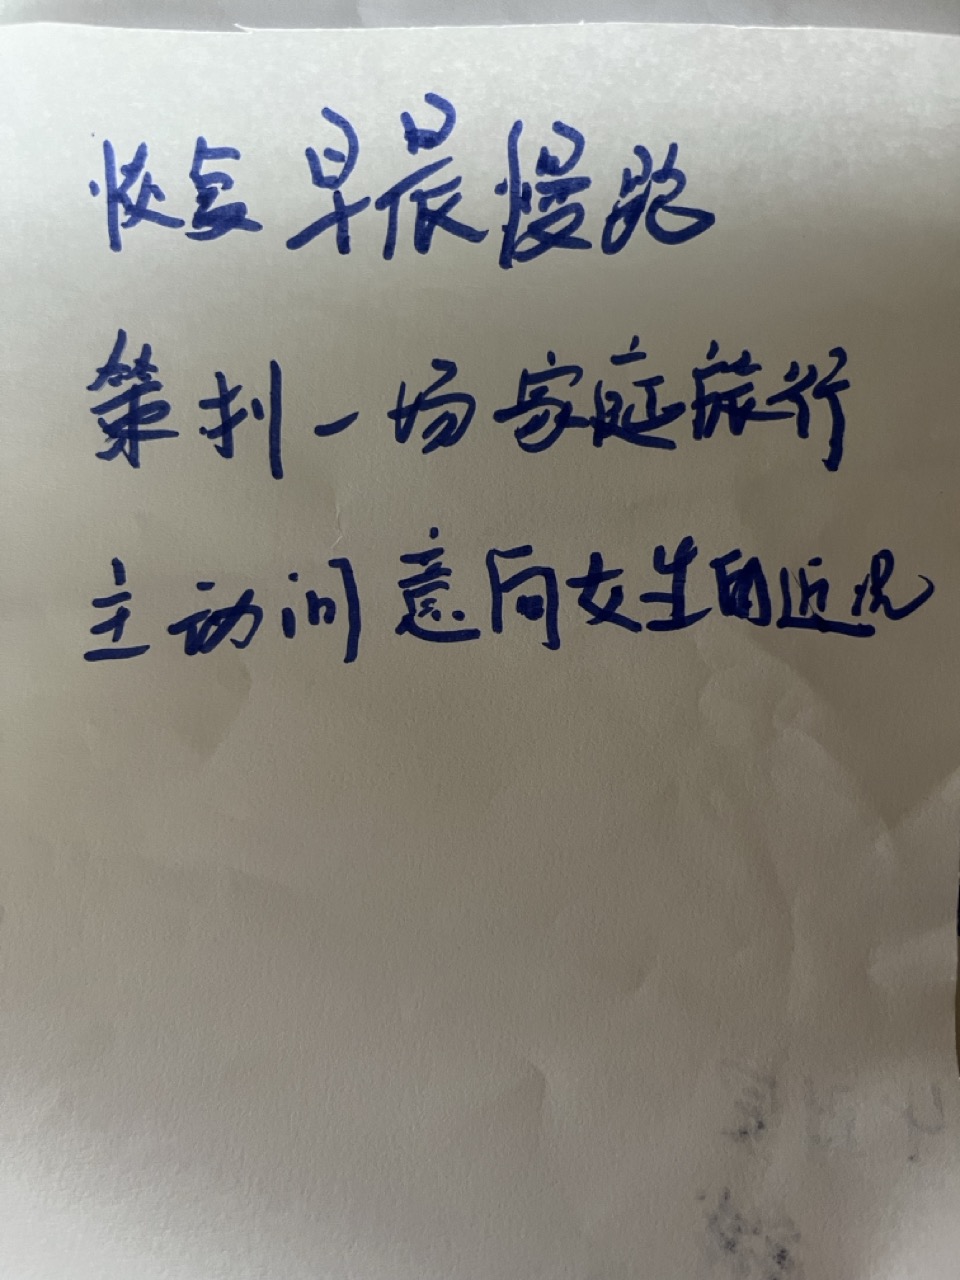 恢复早晨慢跑
策划一场家庭旅行
主动问意向女生的近况